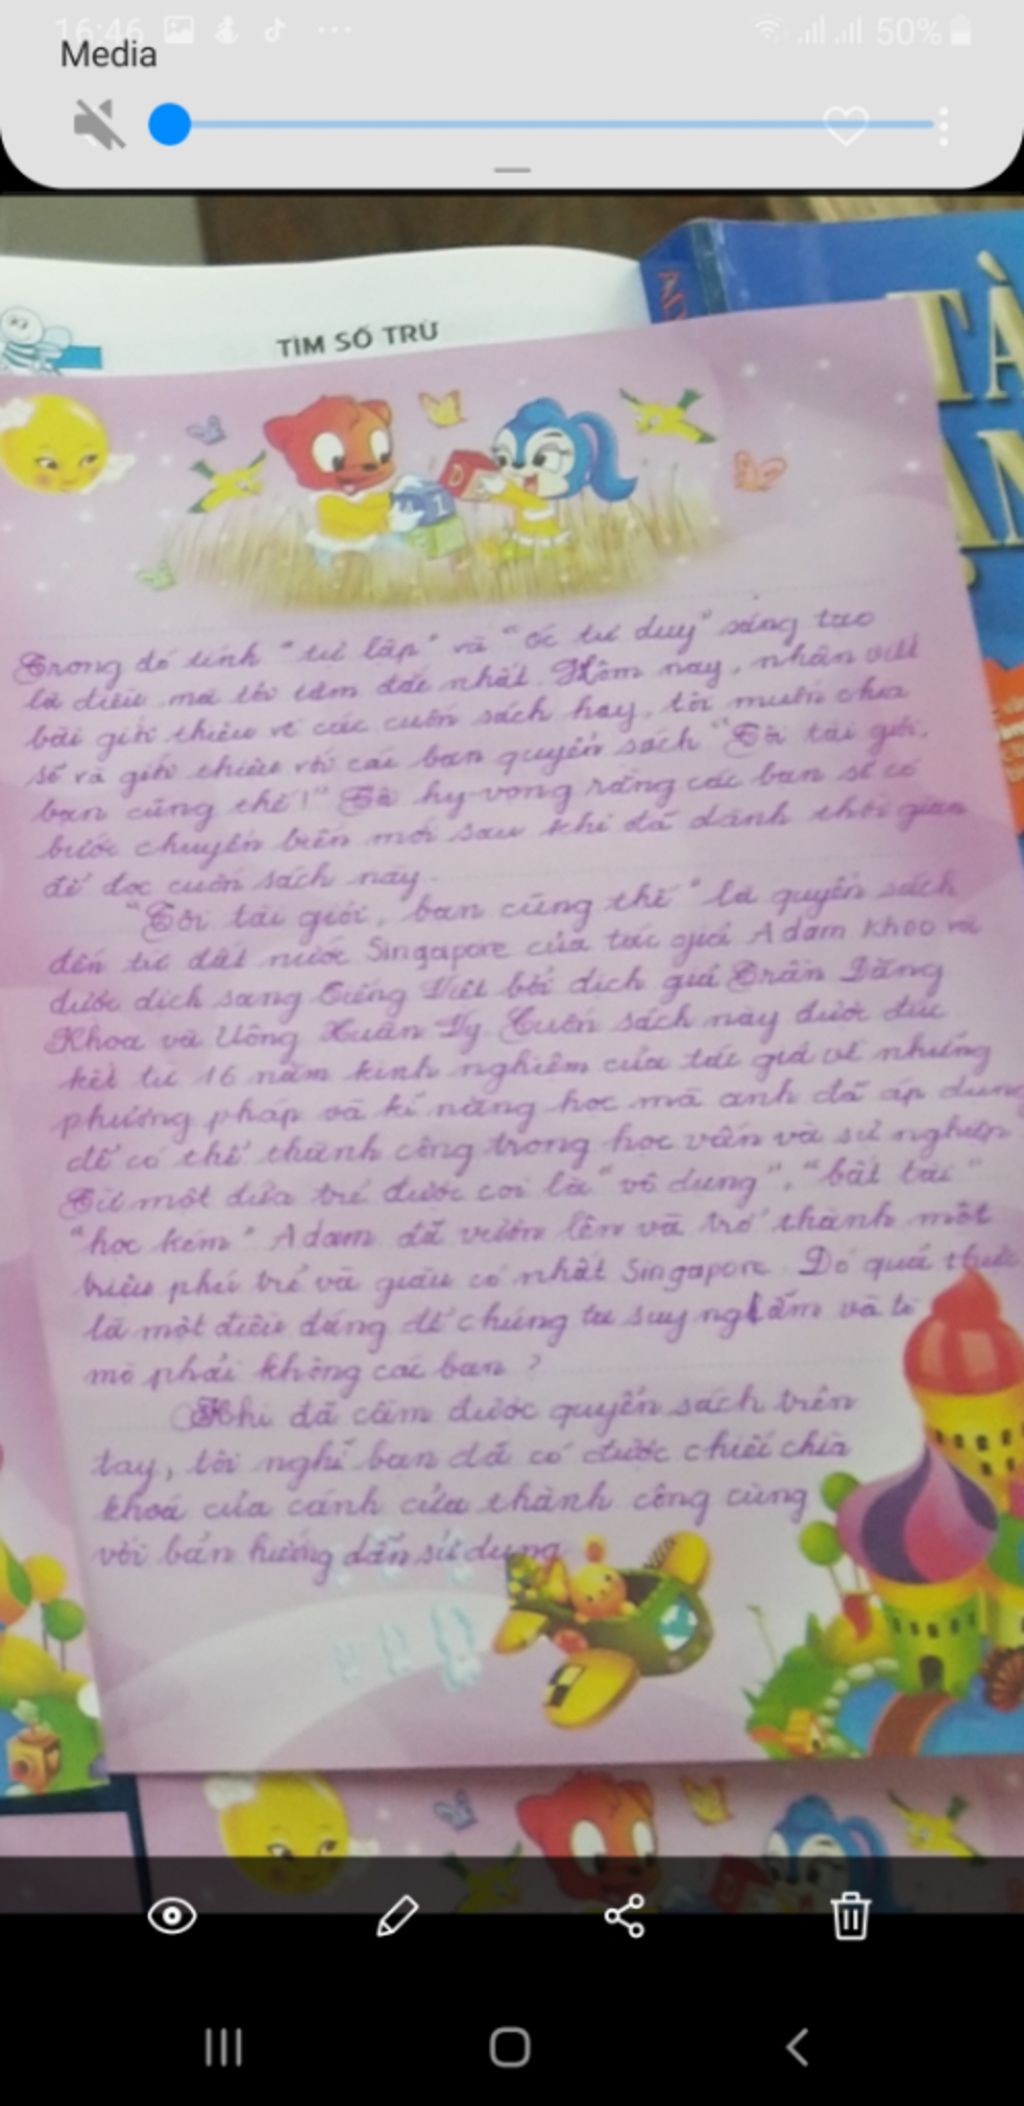 16:46
50%
Media
TÌM SỐ TRỪ
TÀ
Trong đó tính "tự lập" và "óc tư duy" sáng tạo
là điều mà tôi tâm đắc nhất. Hôm nay, nhân viết
bài giới thiệu về các cuốn sách hay, tôi muốn chia
sẻ và giới thiệu với các bạn quyển sách "Tôi tài giỏi,
bạn cũng thế!" Tôi hy vọng rằng các bạn sẽ có
bước chuyển biến mới sau khi đã dành thời gian
để đọc cuốn sách này.
"Tôi tài giỏi, bạn cũng thế" là quyển sách
đến từ đất nước Singapore của tác giả Adam Khoo và
được dịch sang Tiếng Việt bởi dịch giả Trần Đăng
Khoa và Uông Xuân Vy. Cuốn sách này được đúc
kết từ 16 năm kinh nghiệm của tác giả về những
phương pháp và kĩ năng học mà anh đã áp dụng
để có thể thành công trong học vấn và sự nghiệp
Từ một đứa trẻ được coi là "vô dụng", "bất tài"
"học kém" Adam đã vươn lên và trở thành một
triệu phú trẻ và giàu có nhất Singapore. Đó quả thực
là một điều đáng để chúng ta suy ngẫm và tò
mò phải không các bạn ?
Khi đã cầm được quyển sách trên
tay, tôi nghĩ bạn đã có được chiếc chìa
khoá của cánh cửa thành công cùng
với bản hướng dẫn sử dụng